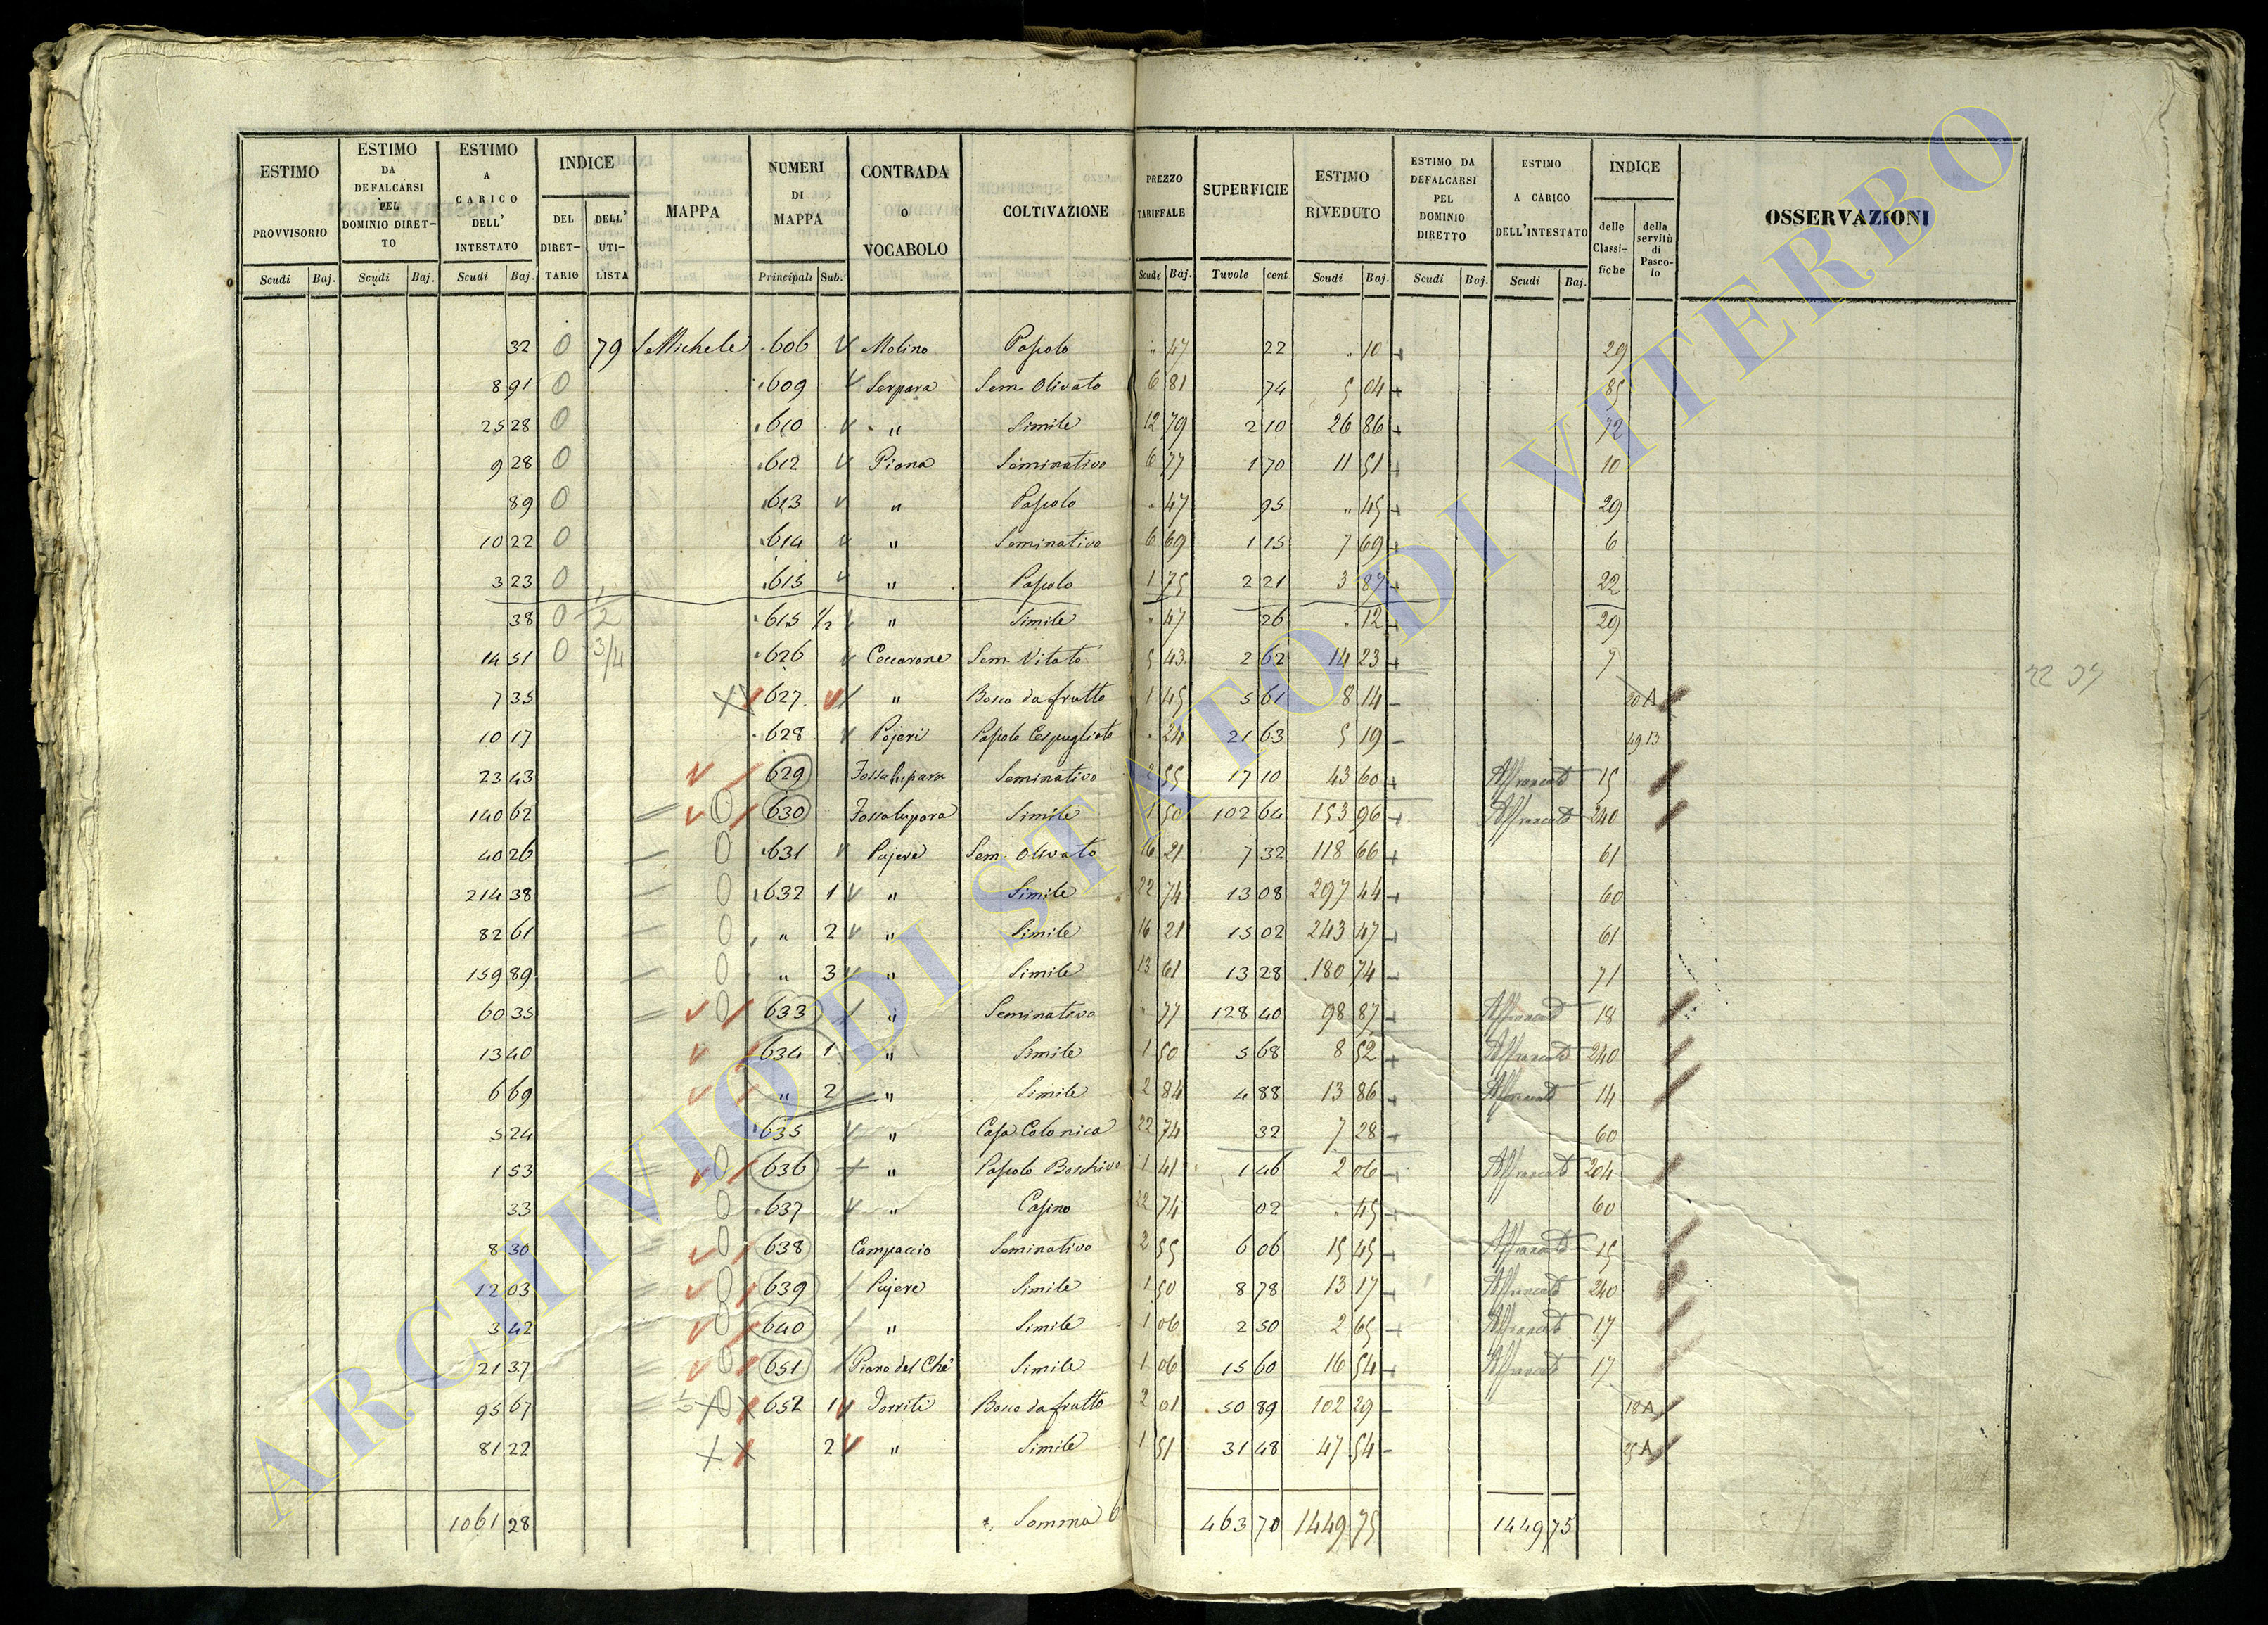 ESTIMO PROVVISORIO | ESTIMO DA DEFALCARSI PEL DOMINIO DIRETTO | ESTIMO A CARICO DELL' INTESTATO | INDICE DEL DIRETTARIO | DELL' UTILISTA | MAPPA | NUMERI DI MAPPA | CONTRADA O VOCABOLO | COLTIVAZIONE | PREZZO TARIFFALE | SUPERFICIE | ESTIMO RIVEDUTO | ESTIMO DA DEFALCARSI PEL DOMINIO DIRETTO | ESTIMO A CARICO DELL'INTESTATO | INDICE delle Classifiche | della servitù di Pascolo | OSSERVAZIONI
Scudi Baj. | Scudi Baj. | Scudi Baj. | Principali Sub. | Scudi Baj. | Tuvole cent | Scudi Baj. | Scudi Baj. | Scudi Baj.
32 0 79 S. Michele 606 Molino Pascolo " 47 22 " 10 29
8 91 0 609 Serpara Sem. Olivato 6 81 74 5 04 85
25 28 0 610 " Simile 12 79 2 10 26 86 72
9 28 0 612 Piana Seminativo 6 77 1 70 11 51 10
89 0 613 " Pascolo " 47 95 " 45 29
10 22 0 614 " Seminativo 6 69 1 15 7 69 6
3 23 0 615 " Pascolo 1 75 2 21 3 87 22
38 0 1/2 615 1/2 " Simile " 47 26 " 12 29
14 51 0 3/4 626 Ceccarone Sem. Vitato 5 43 2 62 14 23 7
7 35 627 " Bosco da frutto 1 45 5 61 8 14 20 A
10 17 628 Pojeri Pascolo Cespugliato " 24 21 63 5 19 49.13
23 43 629 Fossalupara Seminativo 2 55 17 10 43 60 Affrancato 15
140 62 0 630 Fossalupara Simile 1 50 102 64 153 96 Affrancato 240
40 26 0 631 Pojere Sem. Olivato 16 21 7 32 118 66 61
214 38 0 632 1 " Simile 22 74 13 08 297 44 60
82 61 0 " 2 " Simile 16 21 15 02 243 47 61
159 89 0 " 3 " Simile 13 61 13 28 180 74 71
60 35 0 633 " Seminativo " 77 128 40 98 87 Affrancato 18
13 40 634 1 " Simile 1 50 5 68 8 52 Affrancato 240
6 69 " 2 " Simile 2 84 4 88 13 86 Affrancato 14
5 24 635 " Casa Colonica 22 74 32 7 28 60
1 53 0 636 " Pascolo Boschivo 1 41 1 46 2 06 Affrancato 204
33 0 637 " Casino 22 74 02 " 45 60
8 30 0 638 Campaccio Seminativo 2 55 6 06 15 45 Affrancato 15
12 03 0 639 Pojere Simile 1 50 8 78 13 17 Affrancato 240
3 42 0 640 " Simile 1 06 2 50 2 65 Affrancato 17
21 37 0 651 Piano del Che Simile 1 06 15 60 16 54 Affrancato 17
95 67 0 652 1 Torriti Bosco da frutto 2 01 50 89 102 29 18 A
81 22 2 " Simile 1 51 31 48 47 54 25 A
1061 28 Somma 463 70 1449 75 1449 75
ARCHIVIO DI STATO DI VITERBO